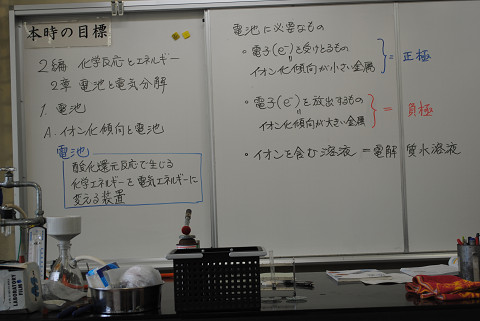 本時の目標
2編 化学反応とエネルギー
2章 電池と電気分解
1. 電池
A. イオン化傾向と電池
電池
酸化還元反応で生じる
化学エネルギーを電気エネルギーに
変える装置
電池に必要なもの
・電子(e⁻)を受けとるもの
=
イオン化傾向が小さい金属
= 正極
・電子(e⁻)を放出するもの
=
イオン化傾向が大きい金属
= 負極
・イオンを含む溶液 = 電解質水溶液
LABORATORY
FILM